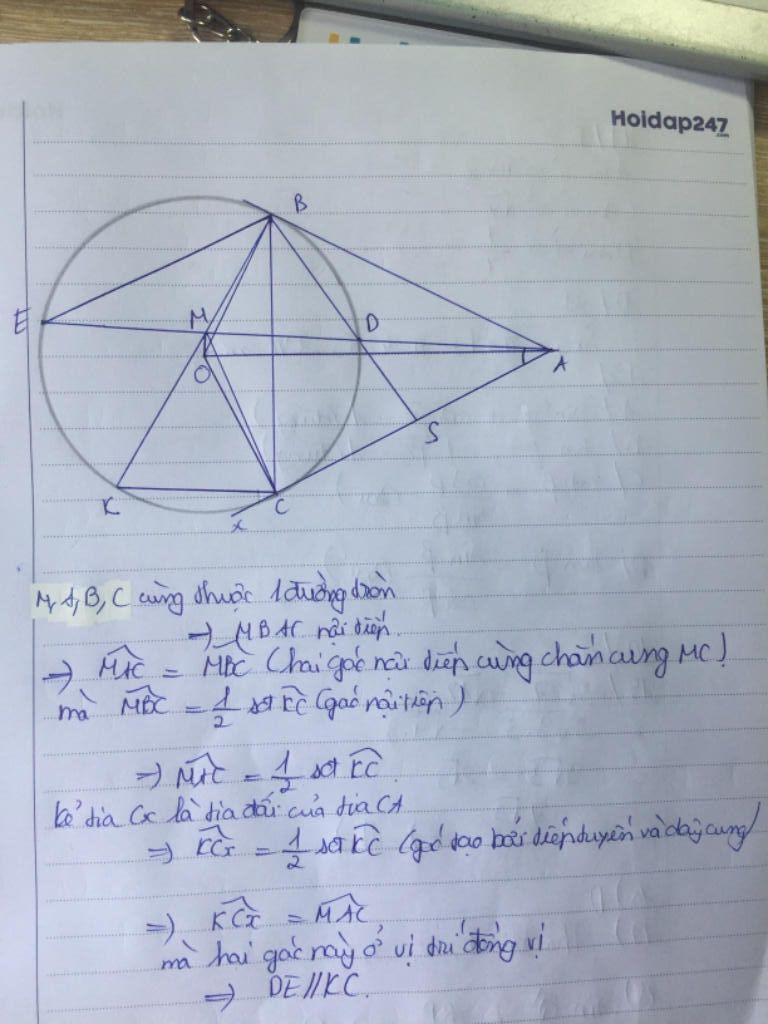 Hoidap247
.com
B
E
M
D
O
A
S
K
C
x
M, A, B, C cùng thuộc 1 đường tròn
=> MBAC nội tiếp.
=> MAC = MBC (hai góc nội tiếp cùng chắn cung MC)
mà MBC = 1/2 sđ KC (góc nội tiếp)
=> MAC = 1/2 sđ KC.
kẻ tia Cx là tia đối của tia CA
=> KCx = 1/2 sđ KC (góc tạo bởi tiếp tuyến và dây cung)
=> KCx = MAC
mà hai góc này ở vị trí đồng vị
=> DE // KC.